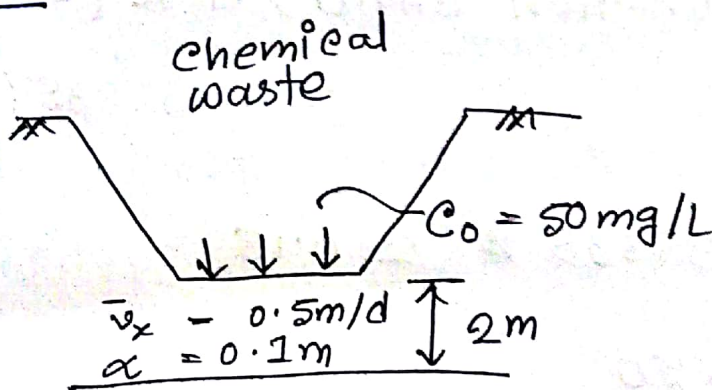 chemical
waste
C₀ = 50 mg/L
v̄ₓ - 0.5m/d
2m
α = 0.1m